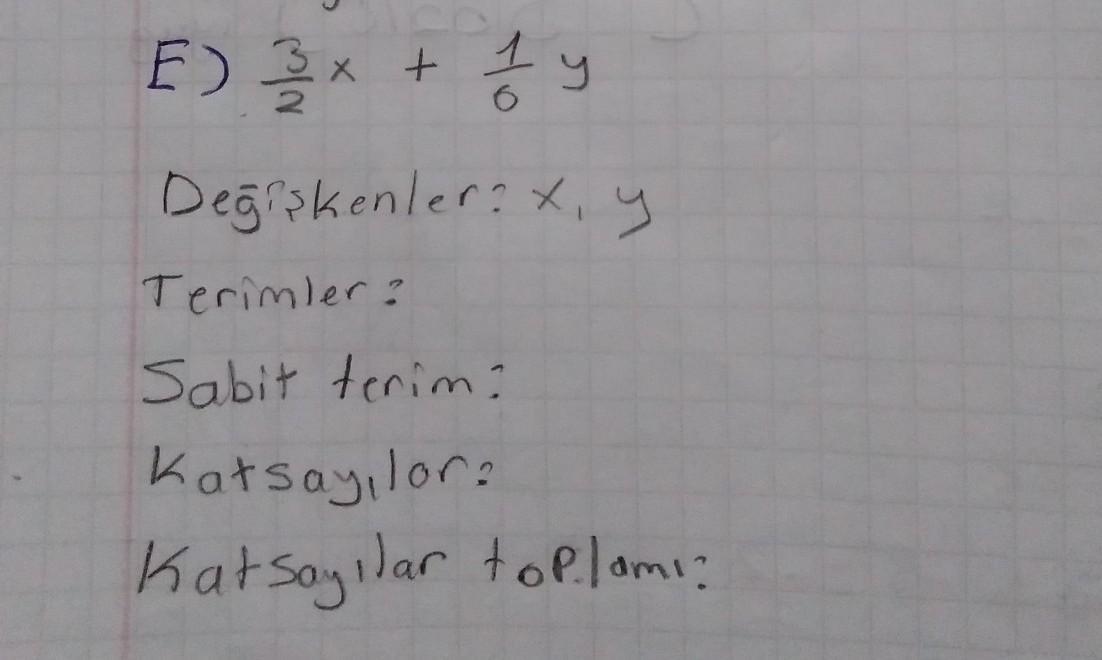 E) 3/2 x + 1/6 y
Değişkenler: x, y
Terimler:
Sabit terim:
Katsayılar:
Katsayılar toplamı: